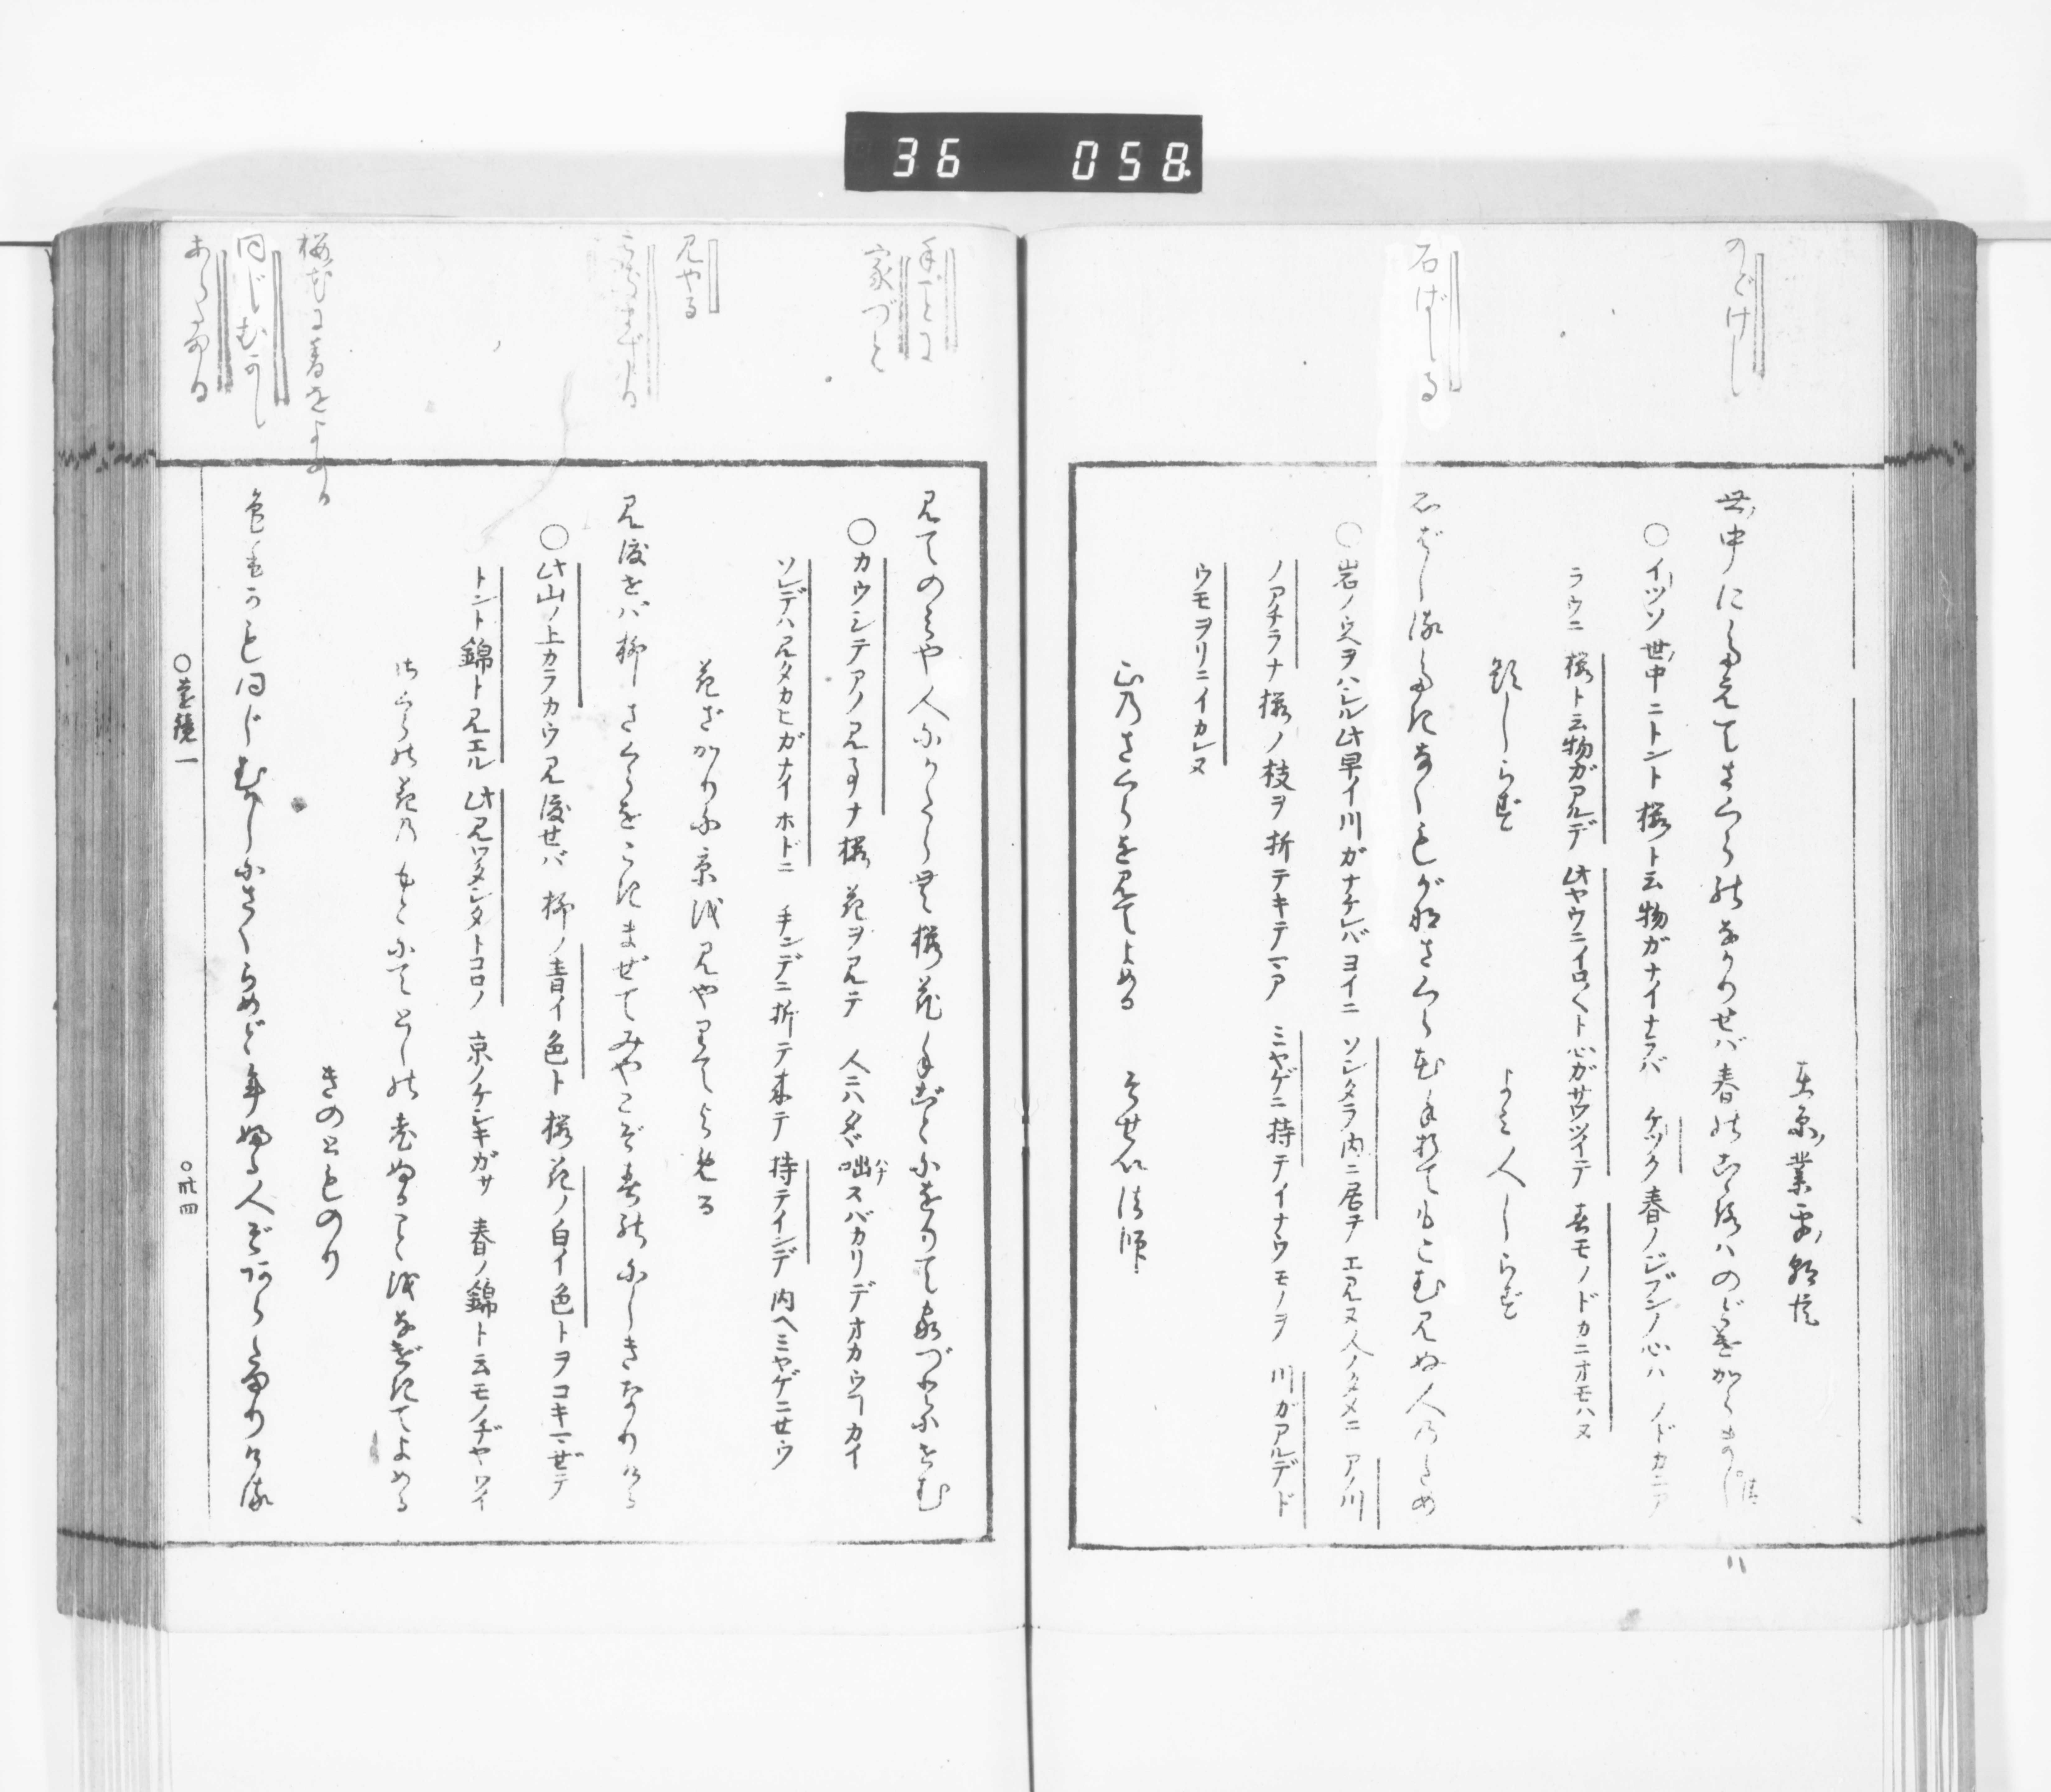 36 058.
のどけし
在原ノ業平ノ朝臣
世ノ中にたえてさくらのなかりせば春のこゝろハのどけからまし
○イツソ世ノ中ニトント櫻ト云物ガナイナラバ ケツク春ノジブンノ心ハ ノドカニア
ラウニ 櫻ト云物ガアルデ 此ヤウニイロ〱ト心ガサワツイテ 春モノドカニオモハヌ
題しらず よみ人しらず
石ばしる
石ばしる瀧なくもがなさくら花手折てもこむ見ぬ人のため
○岩ノウヘヲハシル此早イ川ガナケレバヨイニ ソシタラ内ニ居テ エ見ヌ人ノタメニ アノ川
ノアチラナ櫻ノ枝ヲ折テキテマア ミヤゲニ持テイナウモノヲ 川ガアルデド
ウモヲリニイカレヌ
山のさくらを見てよめる そせい法師
手ごとに
家づと
見てのみや人にかたらむ櫻花手ごとにをりて家づとにせむ
○カウシテアノ見事ナ櫻花ヲ見テ 人ニハタヾ咄スバカリデオカウコトカイ
ハナ
ソレデハ見タカヒガナイホドニ 手ンデニ折テ来テ 持テインデ 内ヘミヤゲニセウ
見やる
花ざかりに京を見やりてよめる
こきまずる
見渡せバ柳さくらをこきまぜてみやこぞ春の錦なりける
○此山ノ上カラカウ見渡セバ 柳ノ青イ色ト 櫻花ノ白イ色トヲコキマゼテ
トント錦ト見エル 此見ワタシタトコロノ 京ノケシキガサ 春ノ錦ト云モノヂヤワイ
さくらの花のもとにてとしの老ぬることをなげきてよめる
きのとものり
桜花に香をよめる
同じむかし
あらたまる
色も香も同じむかしにさくらめど年ふる人ぞあらたまりける
○遠鏡一 ○卅四